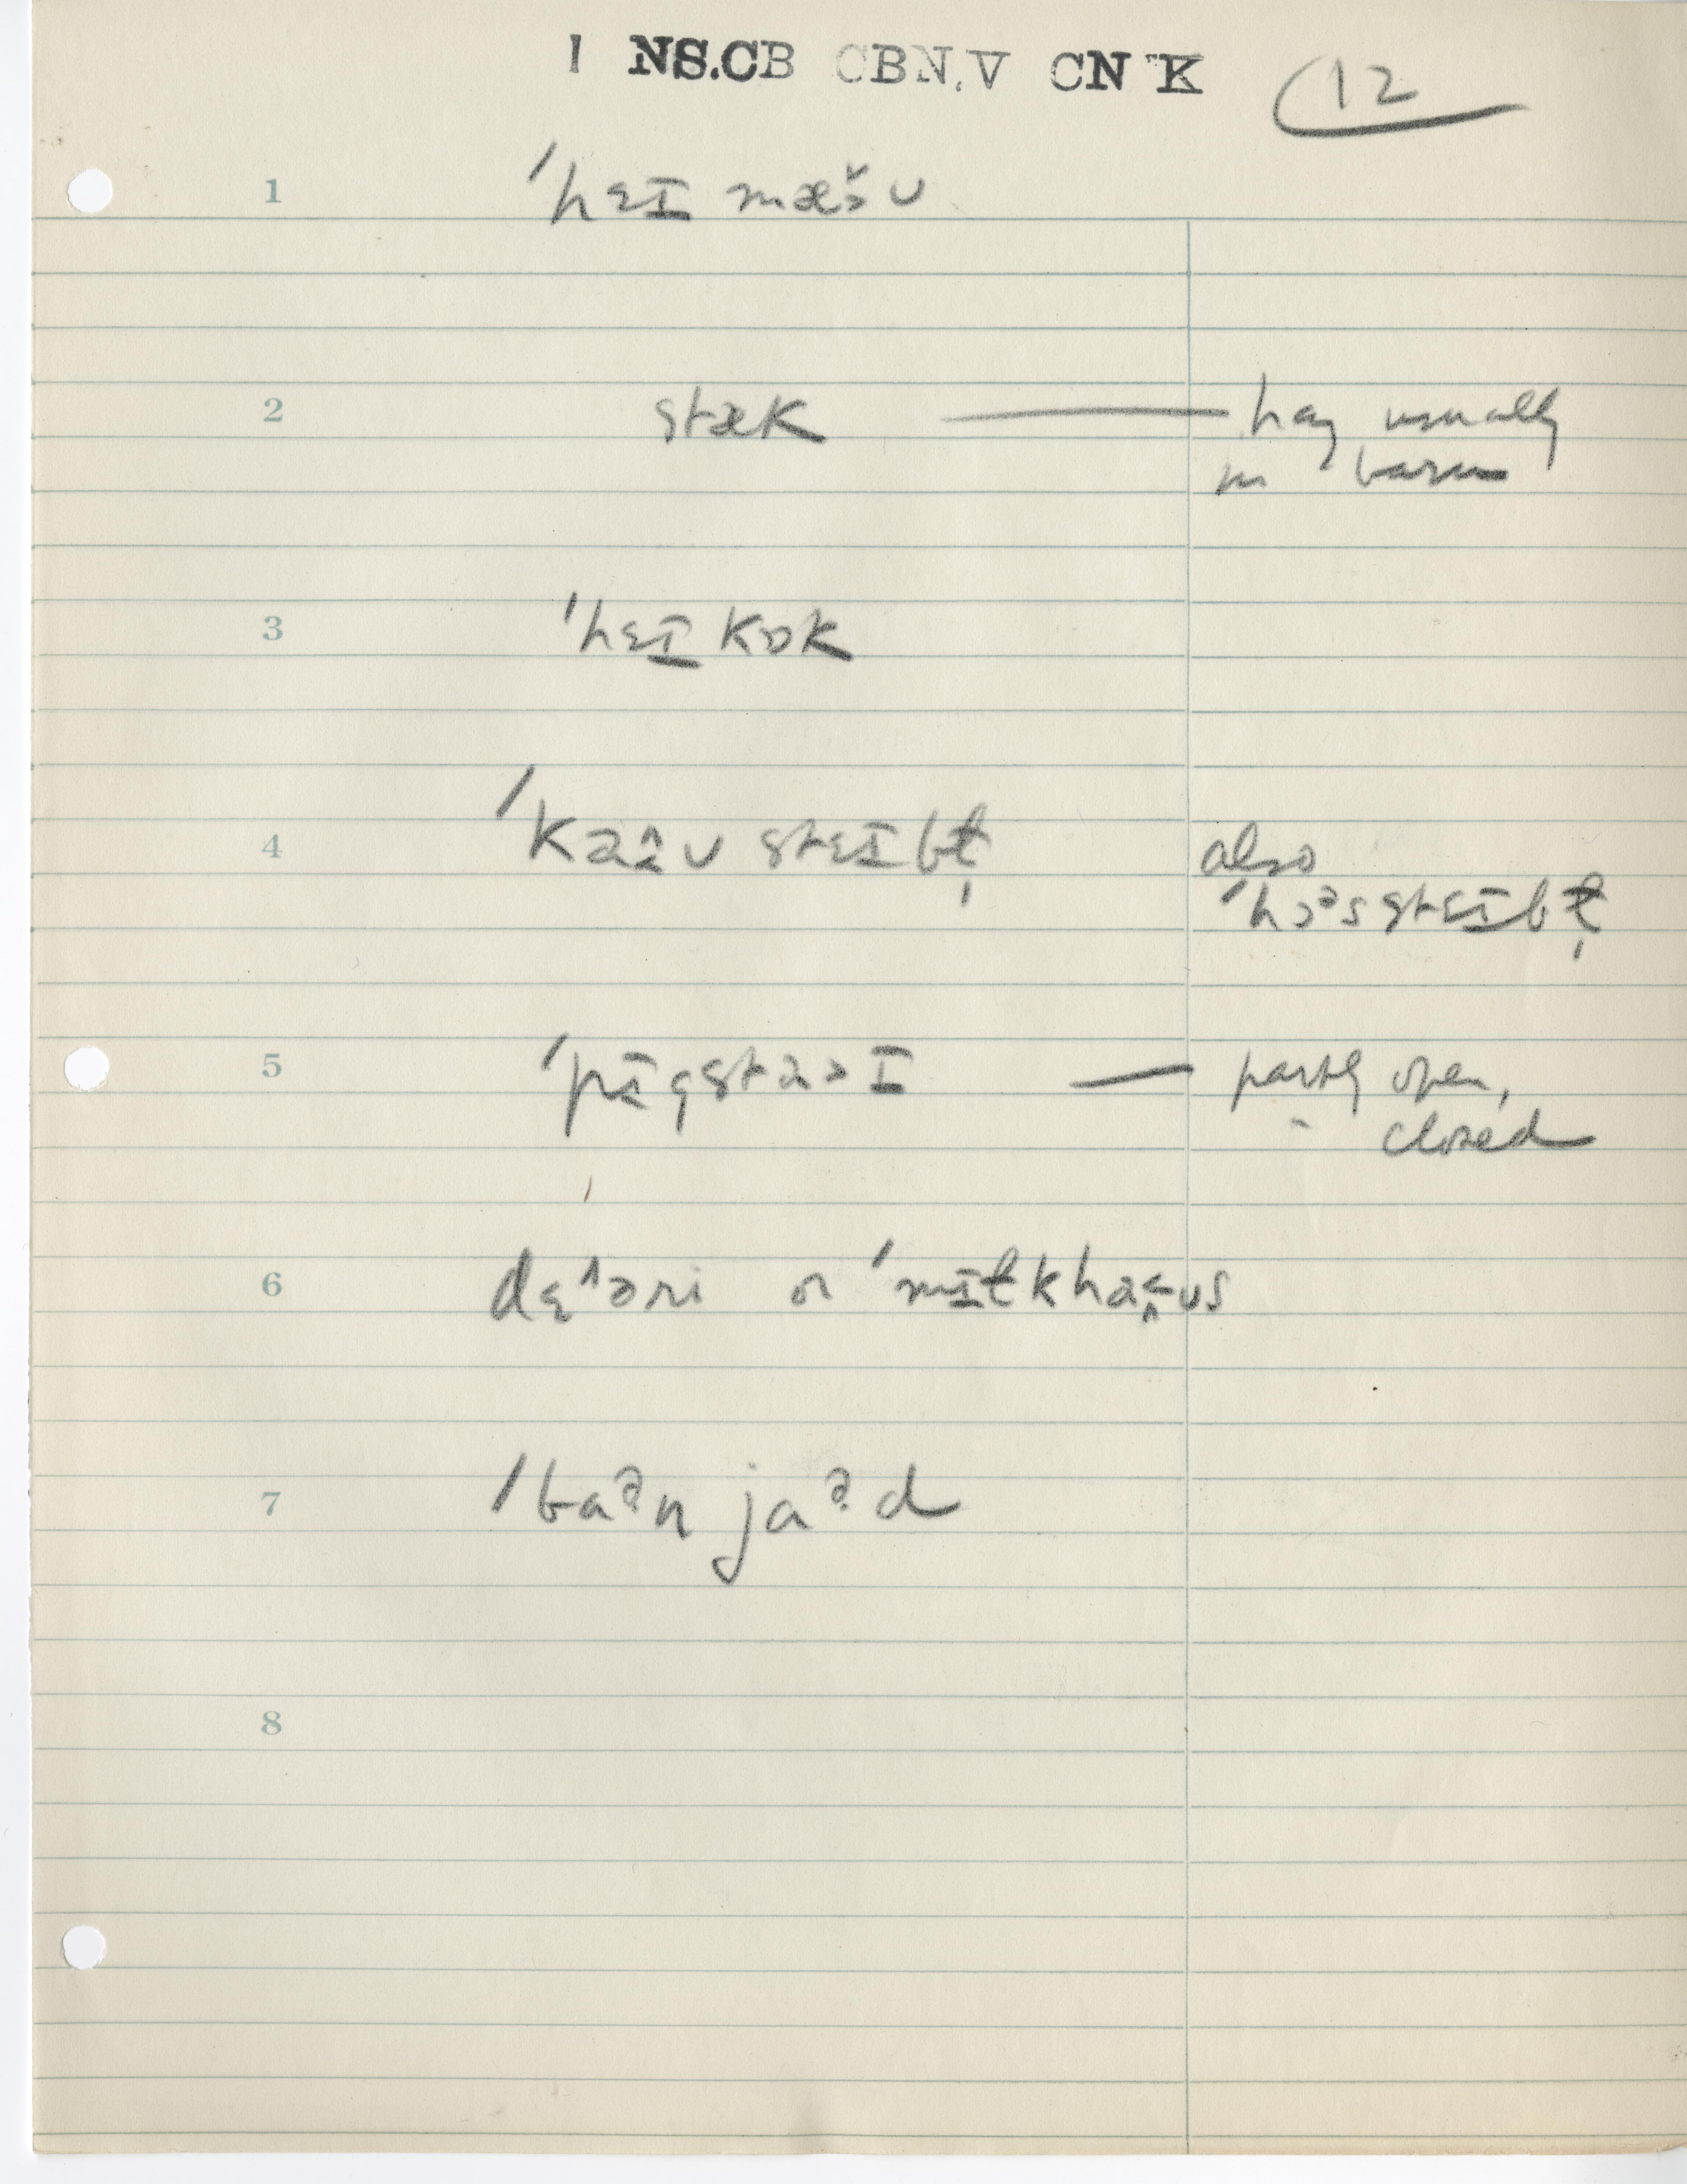 I NS.CB CBN.V CN K 12
1 'hɛɪ mæ̌ʊ
2 stæk — hay usually
in barn
3 'hɛɪ kɒk
4 'kaʊ stɛɪbɫ̩ also
'hɔᵊsstɛɪbɫ̩
5 'pɪgstaɪ — partly open,
" closed
6 dɛ^əri or 'mɪɫkhaʊs
7 'baᵊn jaᵊd
8